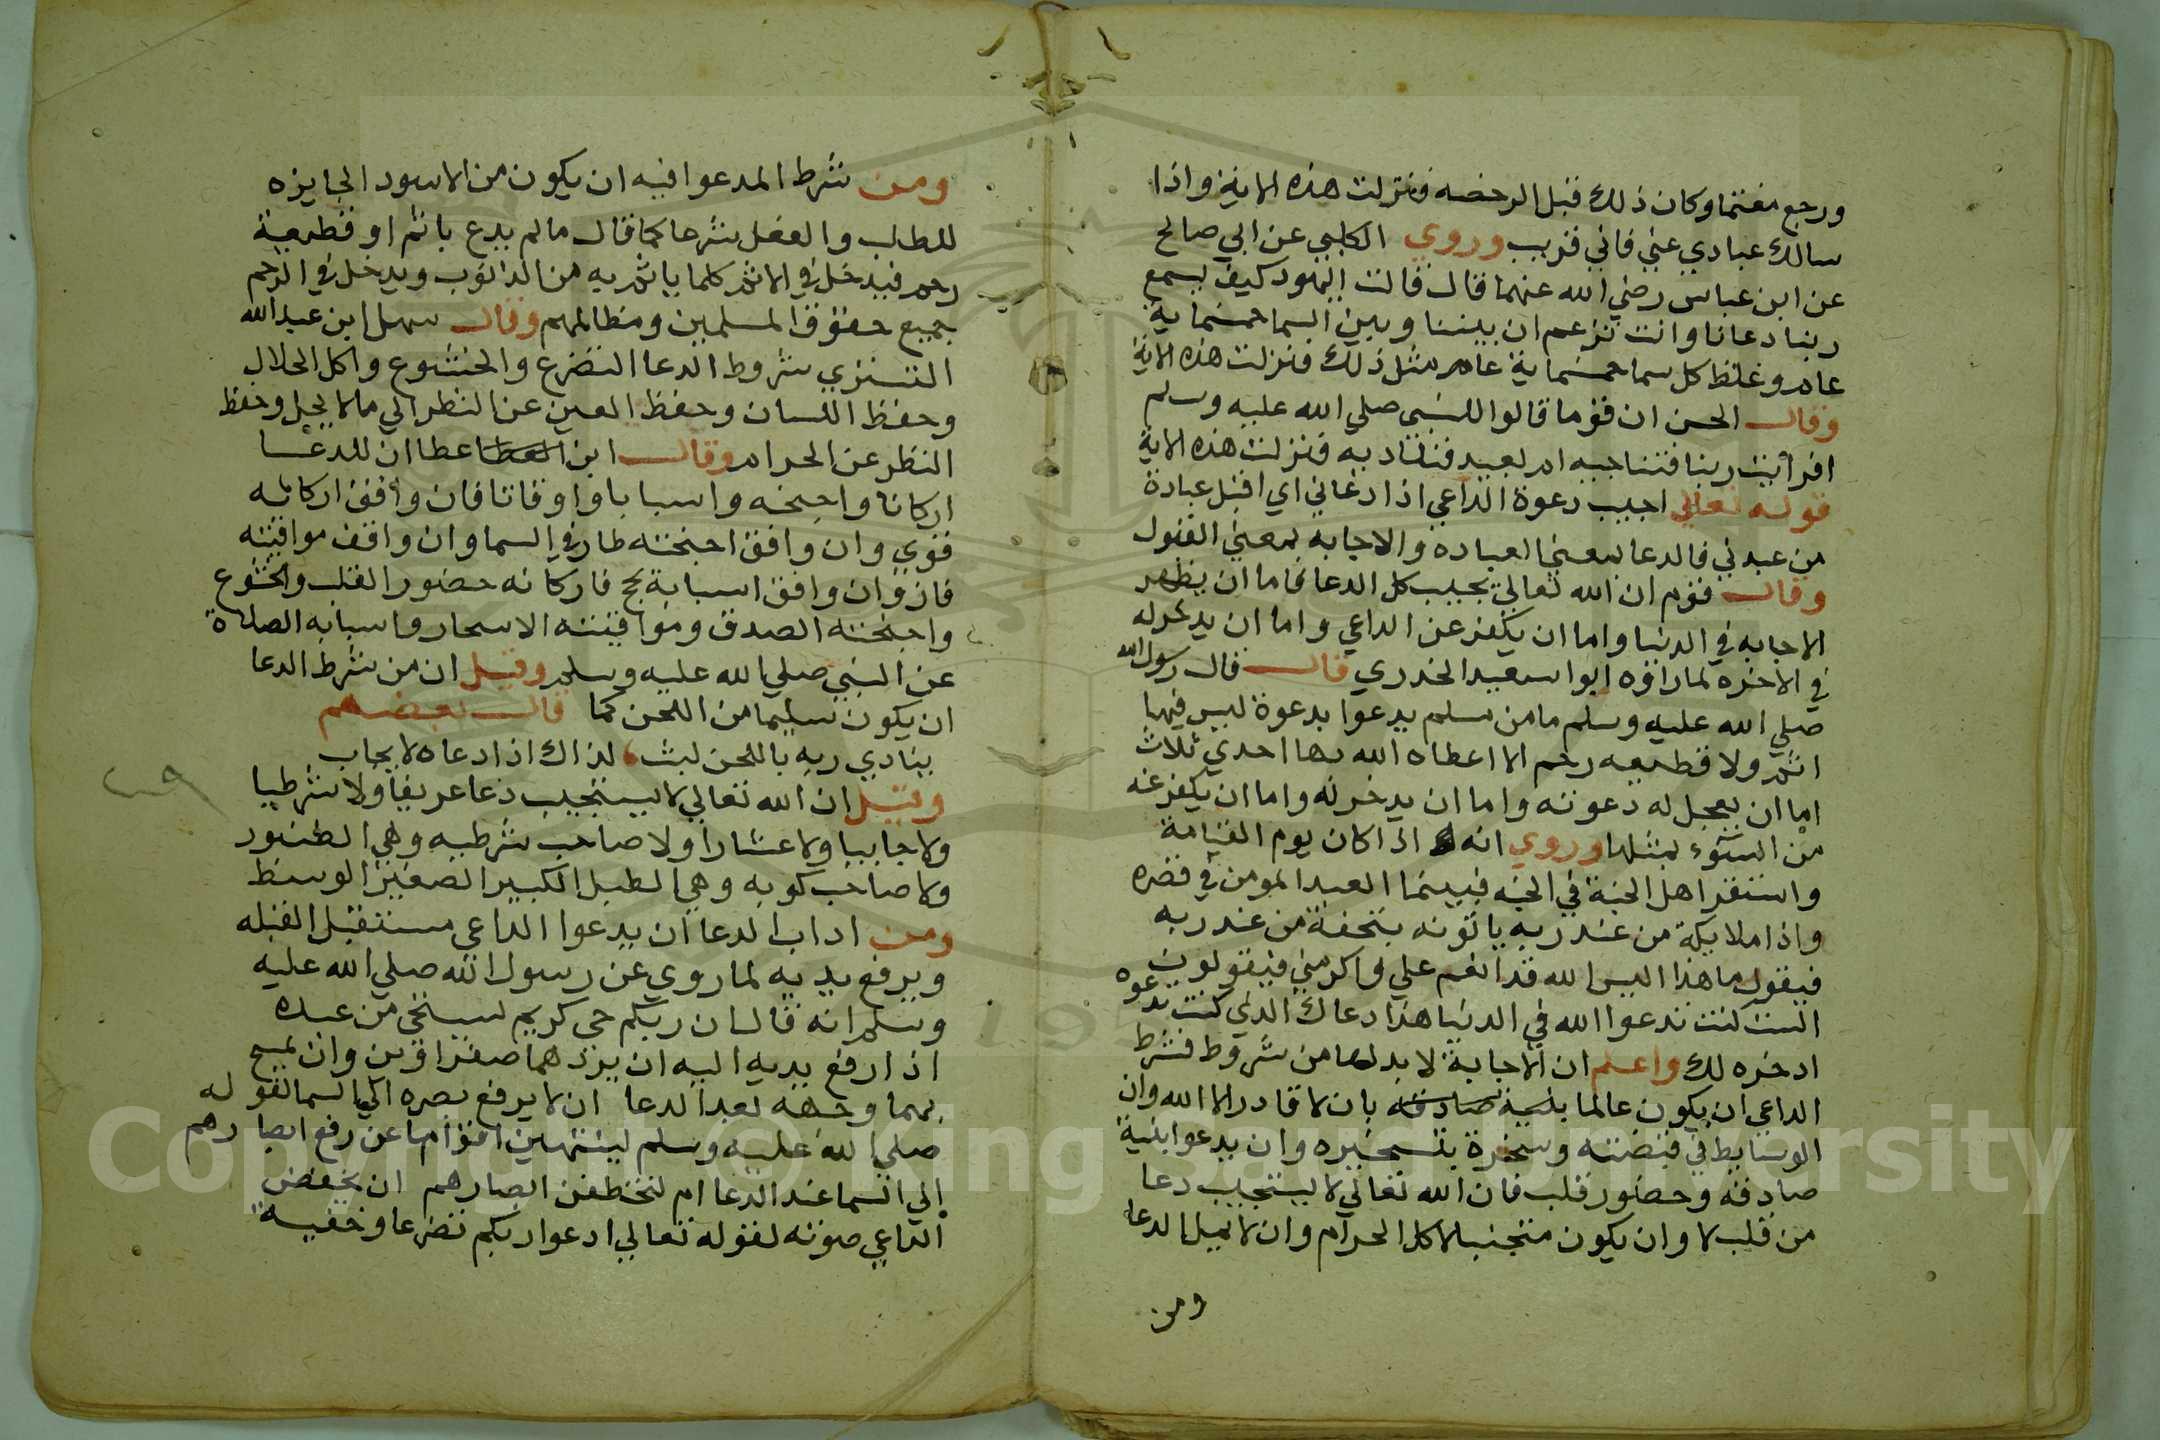 ورجع مغتما وكان ذلك قبل الرخصه فنزلت هذه الاية واذا
سالك عبادي عني فاني قريب وروي الكلبي عن ابي صالح
عن ابن عباس رضي الله عنهما قال قالت اليهود كيف يسمع
ربنا دعانا وانت تزعم ان بيننا وبين السما خمسماية
عام وغلظ كل سما خمسماية عام مثل ذلك فنزلت هذه الاية
وقال الحسن ان قوما قالوا للنبي صلي الله عليه وسلم
اقرايت ربنا فنناجيه ام بعيد فنناديه فنزلت هذه الاية
قوله تعالي اجيب دعوة الداعي اذا دعاني اي اقبل عبادة
من عبدني فالدعا بمعني العباده والاجابه بمعني القبول
وقال قوم ان الله تعالي يجيب كل الدعا فاما ان يظهر
الاجابه في الدنيا واما ان يكفر عن الداعي واما ان يدخرله
في الاخره لما رواه ابوا سعيد الخدري قال قال رسول الله
صلي الله عليه وسلم ما من مسلم يدعوا بدعوة ليس فيها
اثم ولا قطيعه رحم الا اعطاه الله بها احدي ثلاث
اما ان يعجل له دعوته واما ان يدخر له واما ان يكفر عنه
من السوء بمثلها وروي انه اذا كان يوم القيامة
واستقر اهل الجنة في الجنه فبينما العبد المومن في قصره
واذا ملايكة من عند ربه ياتونه بتحفة من عند ربه
فيقول ما هذا اليس الله قد انعم علي واكرمني فيقولون
الست كنت تدعوا الله في الدنيا هذا دعاك الذي كنت تدعوه
ادخره لك واعلم ان الاجابة لا بد لها من شروط فشرط
الداعي ان يكون عالما بنية صادقه بان لا قادر الا الله وان
الوسايط في قبضته وسخرة بتسخيره وان يدعوا بنية
صادقه وحضور قلب فان الله تعالي لا يستجيب دعا
من قلب لا وان يكون متجنبا لاكل الحرام وان لا يمل الدعا
ومن
ومن شرط المدعوا فيه ان يكون من الامور الجايزه
للطلب والفعل شرعا كما قال ما لم يدع باثم او قطيعة
رحم فيدخل في الاثم كلما ياثم به من الذنوب ويدخل في الرحم
جميع حقوق المسلمين ومظالمهم وقال سهل ابن عبد الله
التستري شروط الدعا التضرع والخشوع واكل الحلال
وحفظ اللسان وحفظ العين عن النظر الي مالا يحل وحفظ
النظر عن الحرام وقال ابن العطا عطا ان للدعا
اركانا واجنحه واسبابا واوقاتا فان وافق اركانه
قوي وان وافق اجنحته طار في السما وان وافق مواقيته
فاز وان وافق اسبابه نجح فاركانه حضور القلب والخشوع
واجنحته الصدق ومواقيته الاسحار واسبابه الصلاة
عن النبي صلي الله عليه وسلم وقيل ان من شرط الدعا
ان يكون سليما من اللحن كما قال بعضهم
ينادي ربه باللحن ليث لذاك اذا دعاه لا يجاب
وقيل ان الله تعالي لا يستجيب دعا عريفا ولا شرطيا
ولا جابيا ولا عشارا ولا صاحب شرطبه وهي الطنبور
ولا صاحب كوبه وهي الطبل الكبير الصغير الوسط
ومن اداب الدعا ان يدعوا الداعي مستقبل القبله
ويرفع يديه لما روي عن رسول الله صلي الله عليه
وسلم انه قال ان ربكم حي كريم يستحي من عبده
اذا رفع يديه اليه ان يردهما صفراوين وان يمسح
بهما وجهه بعد الدعا ان لا يرفع بصره الي السما لقوله
صلي الله عليه وسلم لينتهين اقواما عن رفع ابصارهم
الي السما عند الدعا ام لتخطفن ابصارهم ان يخفض
الداعي صوته لقوله تعالي ادعوا ربكم تضرعا وخفية
Copyright © King Saud University